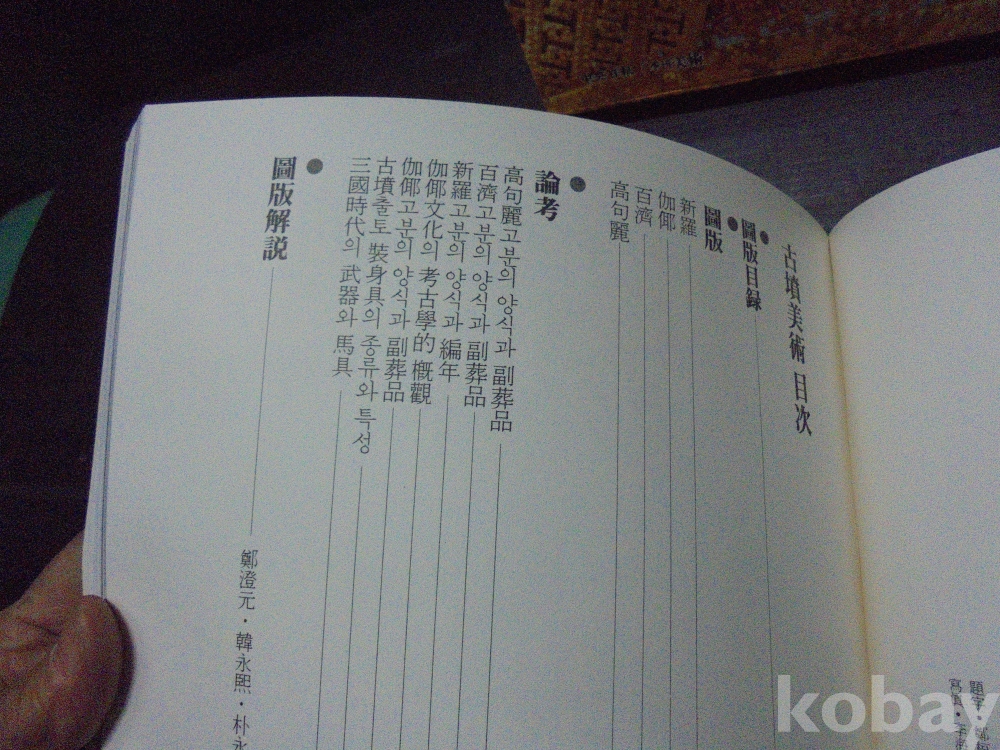 古墳美術 目次
圖版目録
圖版
新羅
伽倻
百濟
高句麗
論考
高句麗고분의 양식과 副葬品
百濟고분의 양식과 副葬品
新羅고분의 양식과 編年
伽倻文化의 考古學的 槪觀
伽倻고분의 양식과 副葬品
古墳출토 裝身具의 종류와 특성
三國時代의 武器와 馬具
圖版解説
鄭澄元・韓永熙・朴永
題字・
寫眞・
kobay